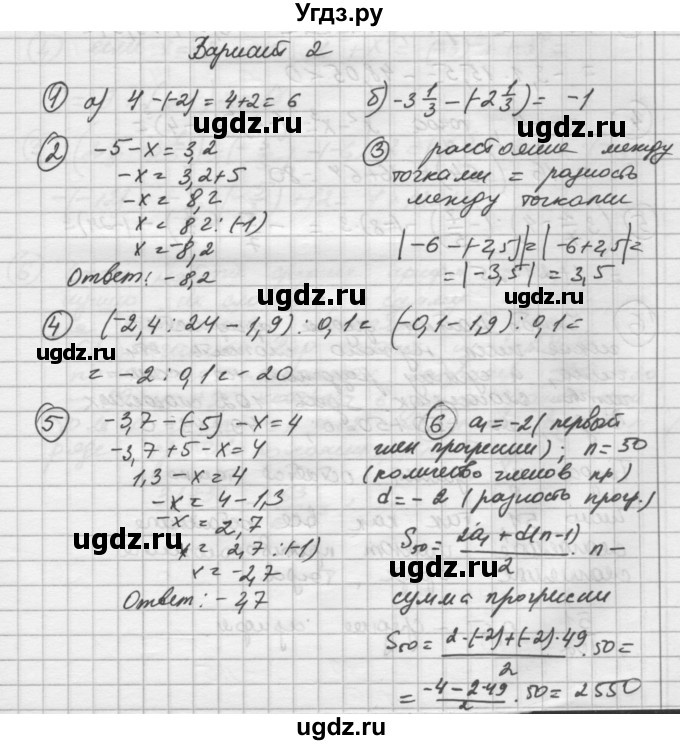 Угдз.ру
Вариант 2
① а) 4 - (-2) = 4+2 = 6
б) -3 1/3 - (-2 1/3) = -1
② -5 - x = 3,2
-x = 3,2+5
-x = 8,2
x = 8,2 : (-1)
x = -8,2
Ответ: -8,2
③ расстояние между
точками = разность
между точками
|-6 - (-2,5)| = |-6+2,5| =
= |-3,5| = 3,5
④ (-2,4 : 24 - 1,9) : 0,1 = (-0,1 - 1,9) : 0,1 =
= -2 : 0,1 = -20
⑤ -3,7 - (-5) - x = 4
-3,7 + 5 - x = 4
1,3 - x = 4
-x = 4 - 1,3
-x = 2,7
x = 2,7 : (-1)
x = -2,7
Ответ: -2,7
⑥ a₁ = -2 (первый
член прогрессии); n = 50
(количество членов пр)
d = -2 (разность прогр.)
S₅₀ = (2a₁ + d(n-1))/2 · n -
сумма прогрессии
S₅₀ = (2·(-2)+(-2)·49)/2 · 50 =
= (-4 - 2·49)/2 · 50 = 2550
ugdz.ru
ugdz.ru
ugdz.ru
ugdz.ru
ugdz.ru
ugdz.ru
ugdz.ru
ugdz.ru
ugdz.ru
ugdz.ru
ugdz.ru
ugdz.ru